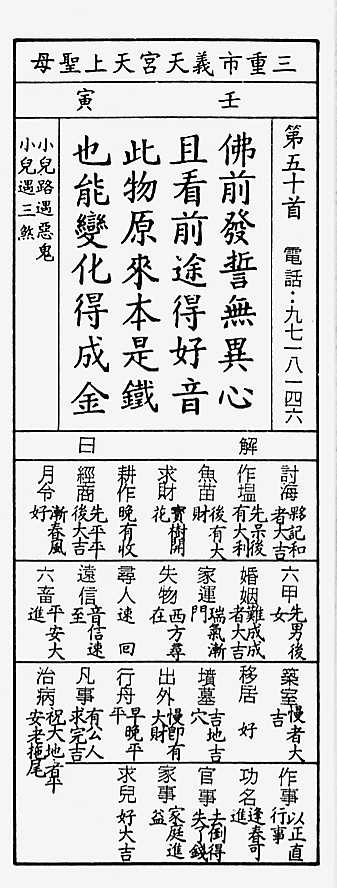 三重市義天宮天上聖母
壬寅
第五十首　電話：九七一八一四六
佛前發誓無異心
且看前途得好音
此物原來本是鐵
也能變化得成金
小兒路遇惡鬼
小兒遇三煞
解曰
討海 夥記和者大吉
作塭 先呆後有大利
魚苗 後有大財
求財 寶樹開花
耕作 晚有收
經商 先平平後大吉
月令 漸春風好
六甲 先男後女
婚姻 難成成者大吉
家運 瑞氣漸門
失物 西方尋在
尋人 速回
遠信 音信速至
六畜 平安大進
築室 慢者大吉
移居 好
墳墓 吉地吉穴
出外 慢即有大財
行舟 早晚平平
凡事 有公人求完吉
治病 祝大地者平安老拖尾
作事 以正直行事
功名 逢春可進
官事 去倒得失了錢
家事 家庭進益
求兒 好大吉